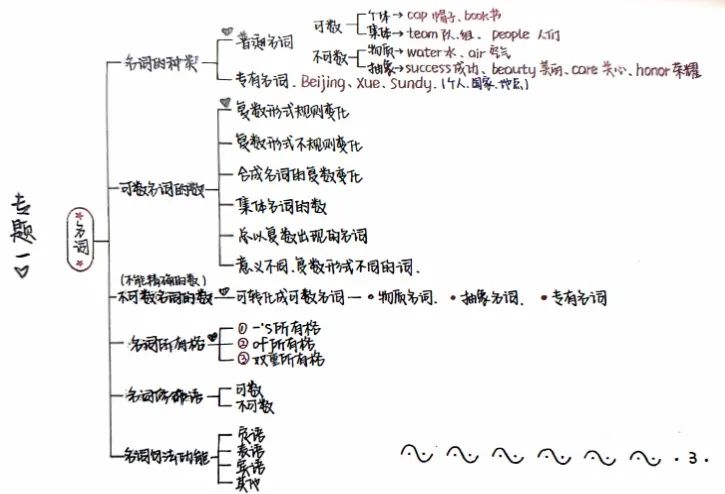 专题一
名词
名词的种类
普通名词
可数
个体→cap 帽子、book书
集体→team 队、组、people 人们
不可数
物质→water水、air 空气
抽象→success成功、beauty美丽、care 关心、honor荣耀
专有名词、Beijing、Xue、Sundy、(个人、国家、地名)
可数名词的数
复数形式规则变化
复数形式不规则变化
合成名词的复数变化
集体名词的数
总以复数出现的名词
意义不同、复数形式不同的词、
(不能精确的数)
不可数名词的数
可转化成可数名词一 •物质名词、 •抽象名词、 •专有名词
名词所有格
① -'s所有格
② of所有格
③ 双重所有格
名词修饰语
可数
不可数
名词句法功能
主语
表语
宾语
其他
·3·